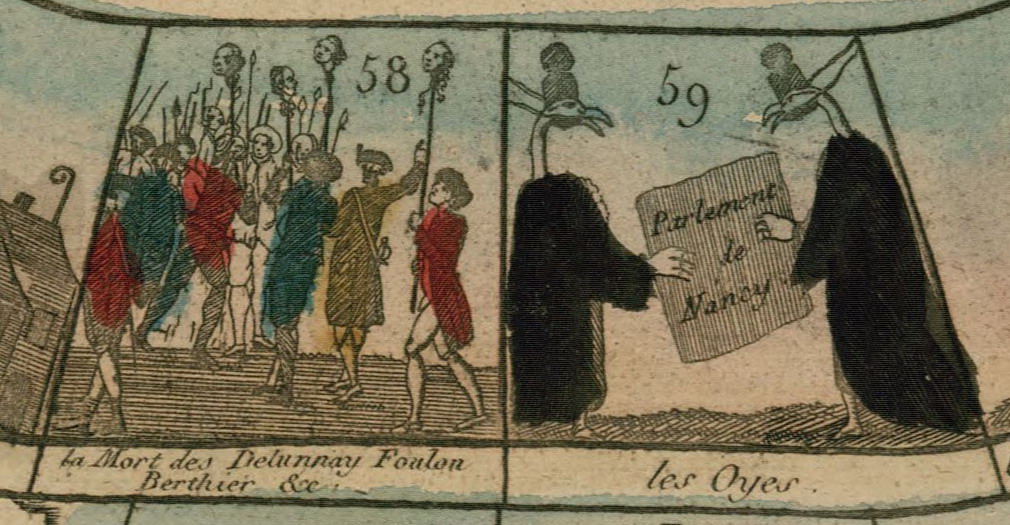 58
la Mort des Delunnay Foulon
Berthier &c.
59
Parlement
de
Nancy
les Oyes.